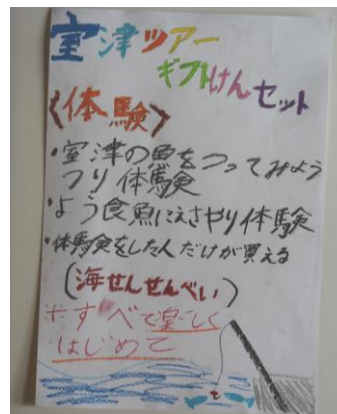 室津ツアー
ギフトけんセット
〈体験〉
・室津の魚をつってみよう
つり体験
・よう食魚にえさやり体験
・体験をした人だけが買える
(海せんせんべい)
※すべて楽しく
はじめて